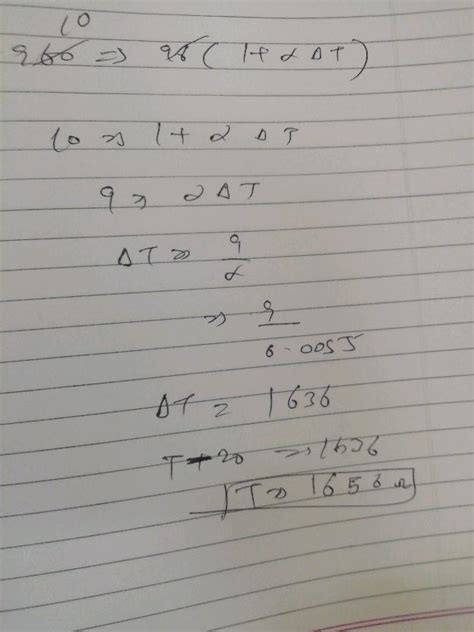 10
960 => 96 ( 1 + α ΔT )
10 => 1 + α ΔT
9 => α ΔT
ΔT => 9/α
=> 9/0.0055
ΔT = 1636
T - 20 => 1636
T => 1656 Ω